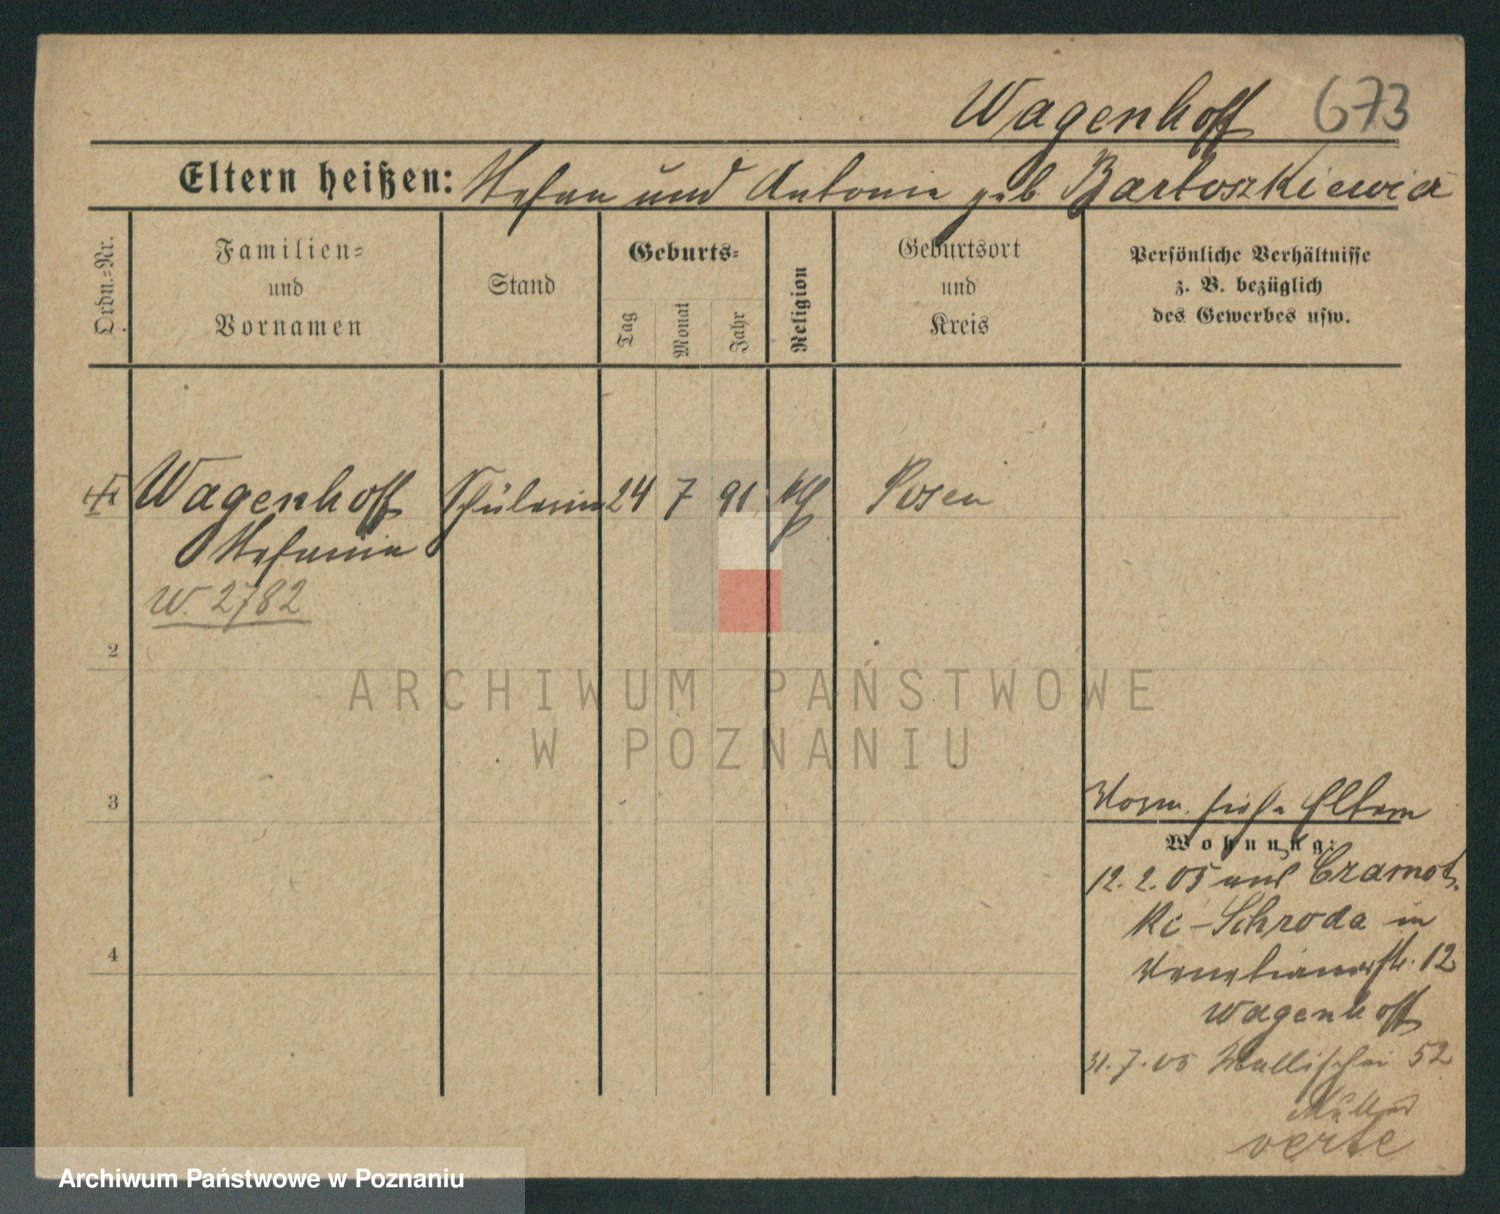 Wagenhoff 673
Eltern heißen: Stefan und Antonie geb Bartoszkiewicz
Ordn.=Nr.
Familien=
und
Vornamen
Stand
Geburts=
Tag
Monat
Jahr
Religion
Geburtsort
und
Kreis
Persönliche Verhältnisse
z. B. bezüglich
des Gewerbes usw.
1 Wagenhoff Schülerin 24 7 91 kth Posen
Stefania
W. 2782
2
ARCHIWUM PAŃSTWOWE
W POZNANIU
3
Vorm. siehe Eltern
Wohnung:
12. 2. 05 aus Czarnot.
Kr-Schroda in
4
Venetianerstr. 12
Wagenhoff
31. 7. 05 Wallischei 52
verte
Archiwum Państwowe w Poznaniu